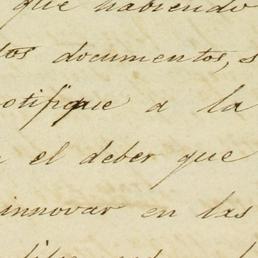 que habiendo
los documentos, s
notifique a la
el deber que
innovar en las